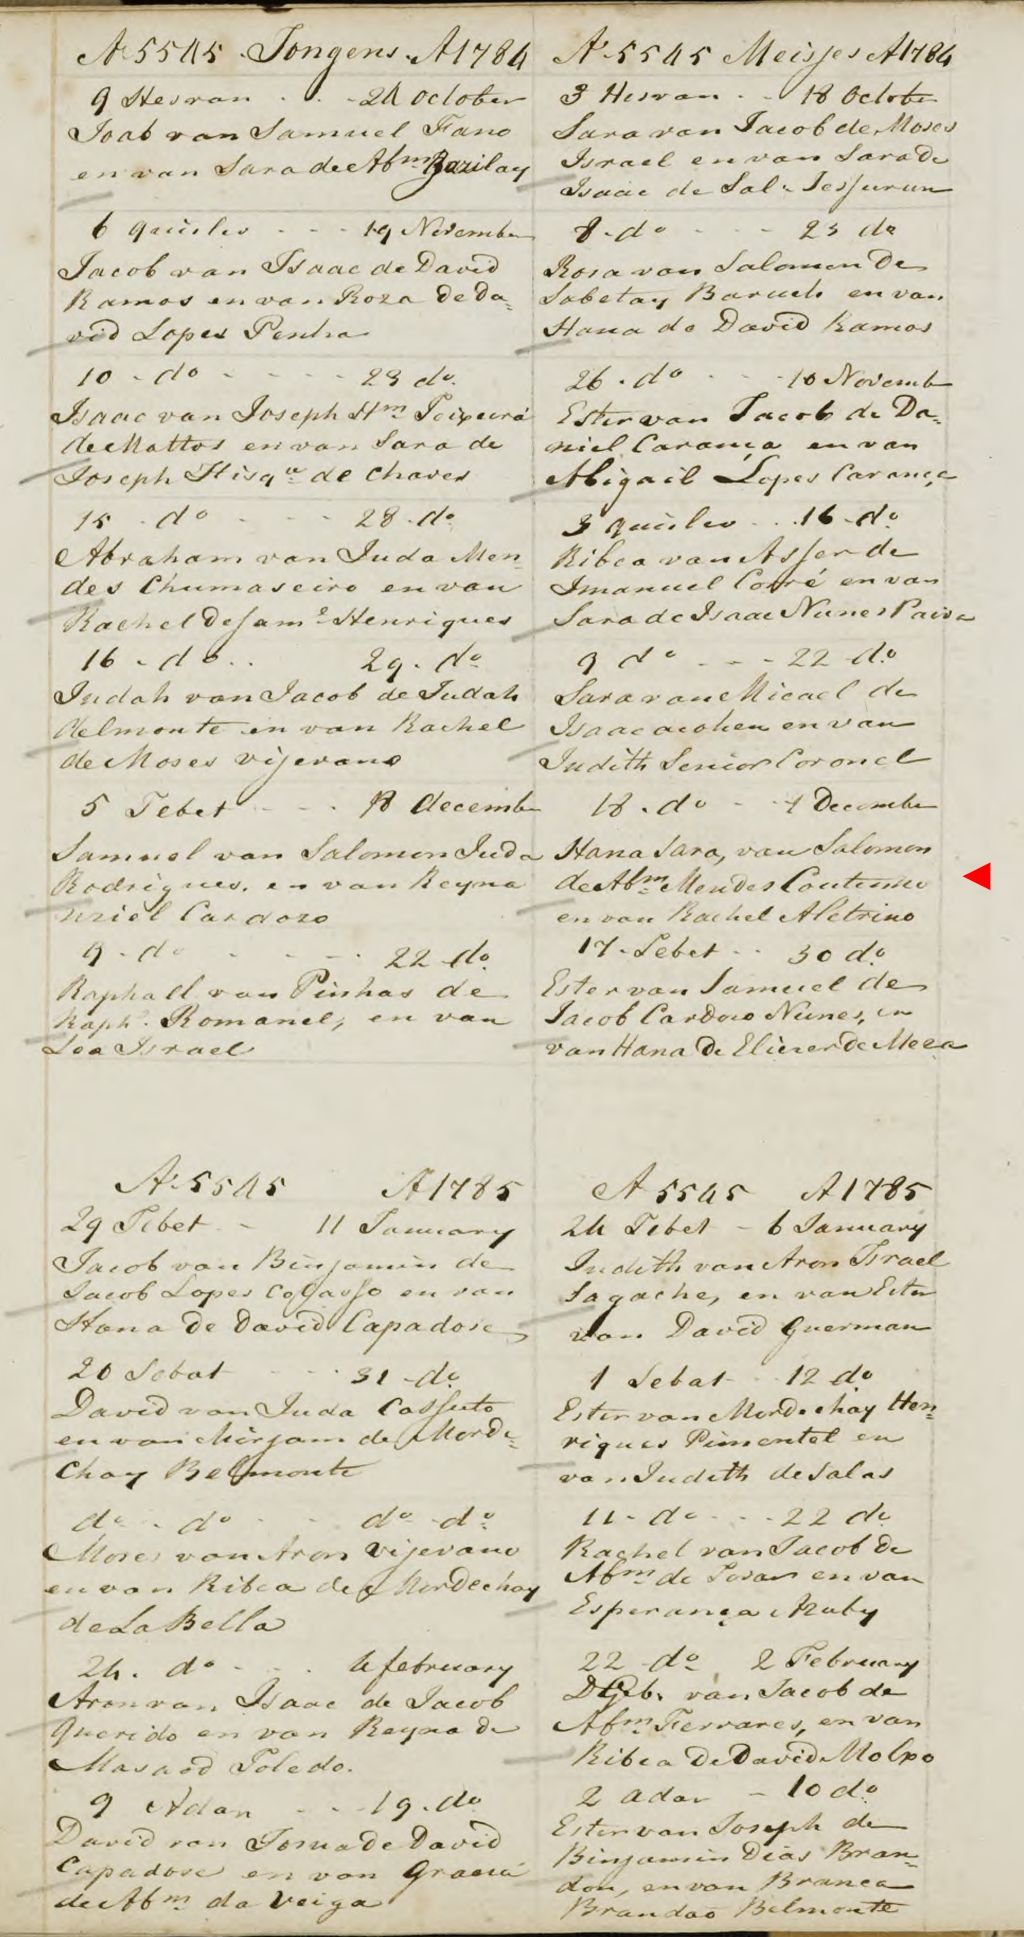 A 5545 Jongens A 1784
9 Hesvan 24 October
Joab van Samuel Fano
en van Sara de Abm Barzilay
6 Quislev 19 November
Jacob van Isaac de David
Ramos en van Roza de Da-
vid Lopes Penha
10 do 23 do
Isaac van Joseph Hm Teixeira
de Mattos en van Sara de
Joseph Hisqu de Chaves
15 do 28 do
Abraham van Juda Men-
des Chumaseiro en van
Rachel de Saml Henriques
16 do 29 do
Judah van Jacob de Judah
delmonte en van Rachel
de Moses vijevano
5 Tebet 18 december
Samuel van Salomon Juda
Rodrigues, en van Reyna
Uziel Cardozo
9 do 22 do
Raphall van Pinhas de
Raphl Romanel, en van
Lea Israel
A 5545 A 1785
29 Tebet 11 January
Jacob van Binjamin de
Jacob Lopes Colasso en van
Hana de David Capadose
20 Sebat 31 do
David van Juda Cassuto
en van Mirjam de Morde-
chay Belmonte
do do do do
Moses van Aron Vijevano
en van Ribca de Mordechay
de La Bella
24 do 4 february
Aron van Isaac de Jacob
Querido en van Reyna de
Masaod Toledo.
9 Adar 19 do
David van Josua de David
Capadose en van Gracia
de Abm da Veiga
A 5545 Meisjes A 1784
3 Hesvan 18 October
Sara van Jacob de Moses
Israel en van Sara de
Isaac de Sal Jessurun
8 do 23 do
Rosa van Salomon de
Sabetay Baruch en van
Hana de David Ramos
26 do 10 Novemb
Ester van Jacob de Da-
niel Carança en van
Abigail Lopes Carança
3 Quislev 16 do
Ribca van Asser de
Imanuel Corré en van
Sara de Isaac Nunes Paiva
9 do 22 do
Sara van Micael de
Isaac acohen en van
Judith Senior Coronel
18 do 1 December
Hana Sara, van Salomon
de Abm Mendes Coutinho
en van Rachel Aletrino
17 Tebet 30 do
Ester van Samuel de
Jacob Cardozo Nunes, en
van Hana de Eliezer de Meza
A 5545 A 1785
24 Tebet 6 January
Judith van Aron Israel
Sagache, en van Ester
van David Querman
1 Sebat 12 do
Ester van Mordechay Hen-
riques Pimentel en
van Judith de Salas
11 do 22 do
Rachel van Jacob de
Abm de Sosa en van
Esperança Azuby
22 do 2 February
van Jacob de
Abm Ferrares, en van
Ribca de David Molxo
2 adar 10 do
Ester van Joseph de
Binjamin Dias Bran-
don, en van Branca
Brandao Belmonte